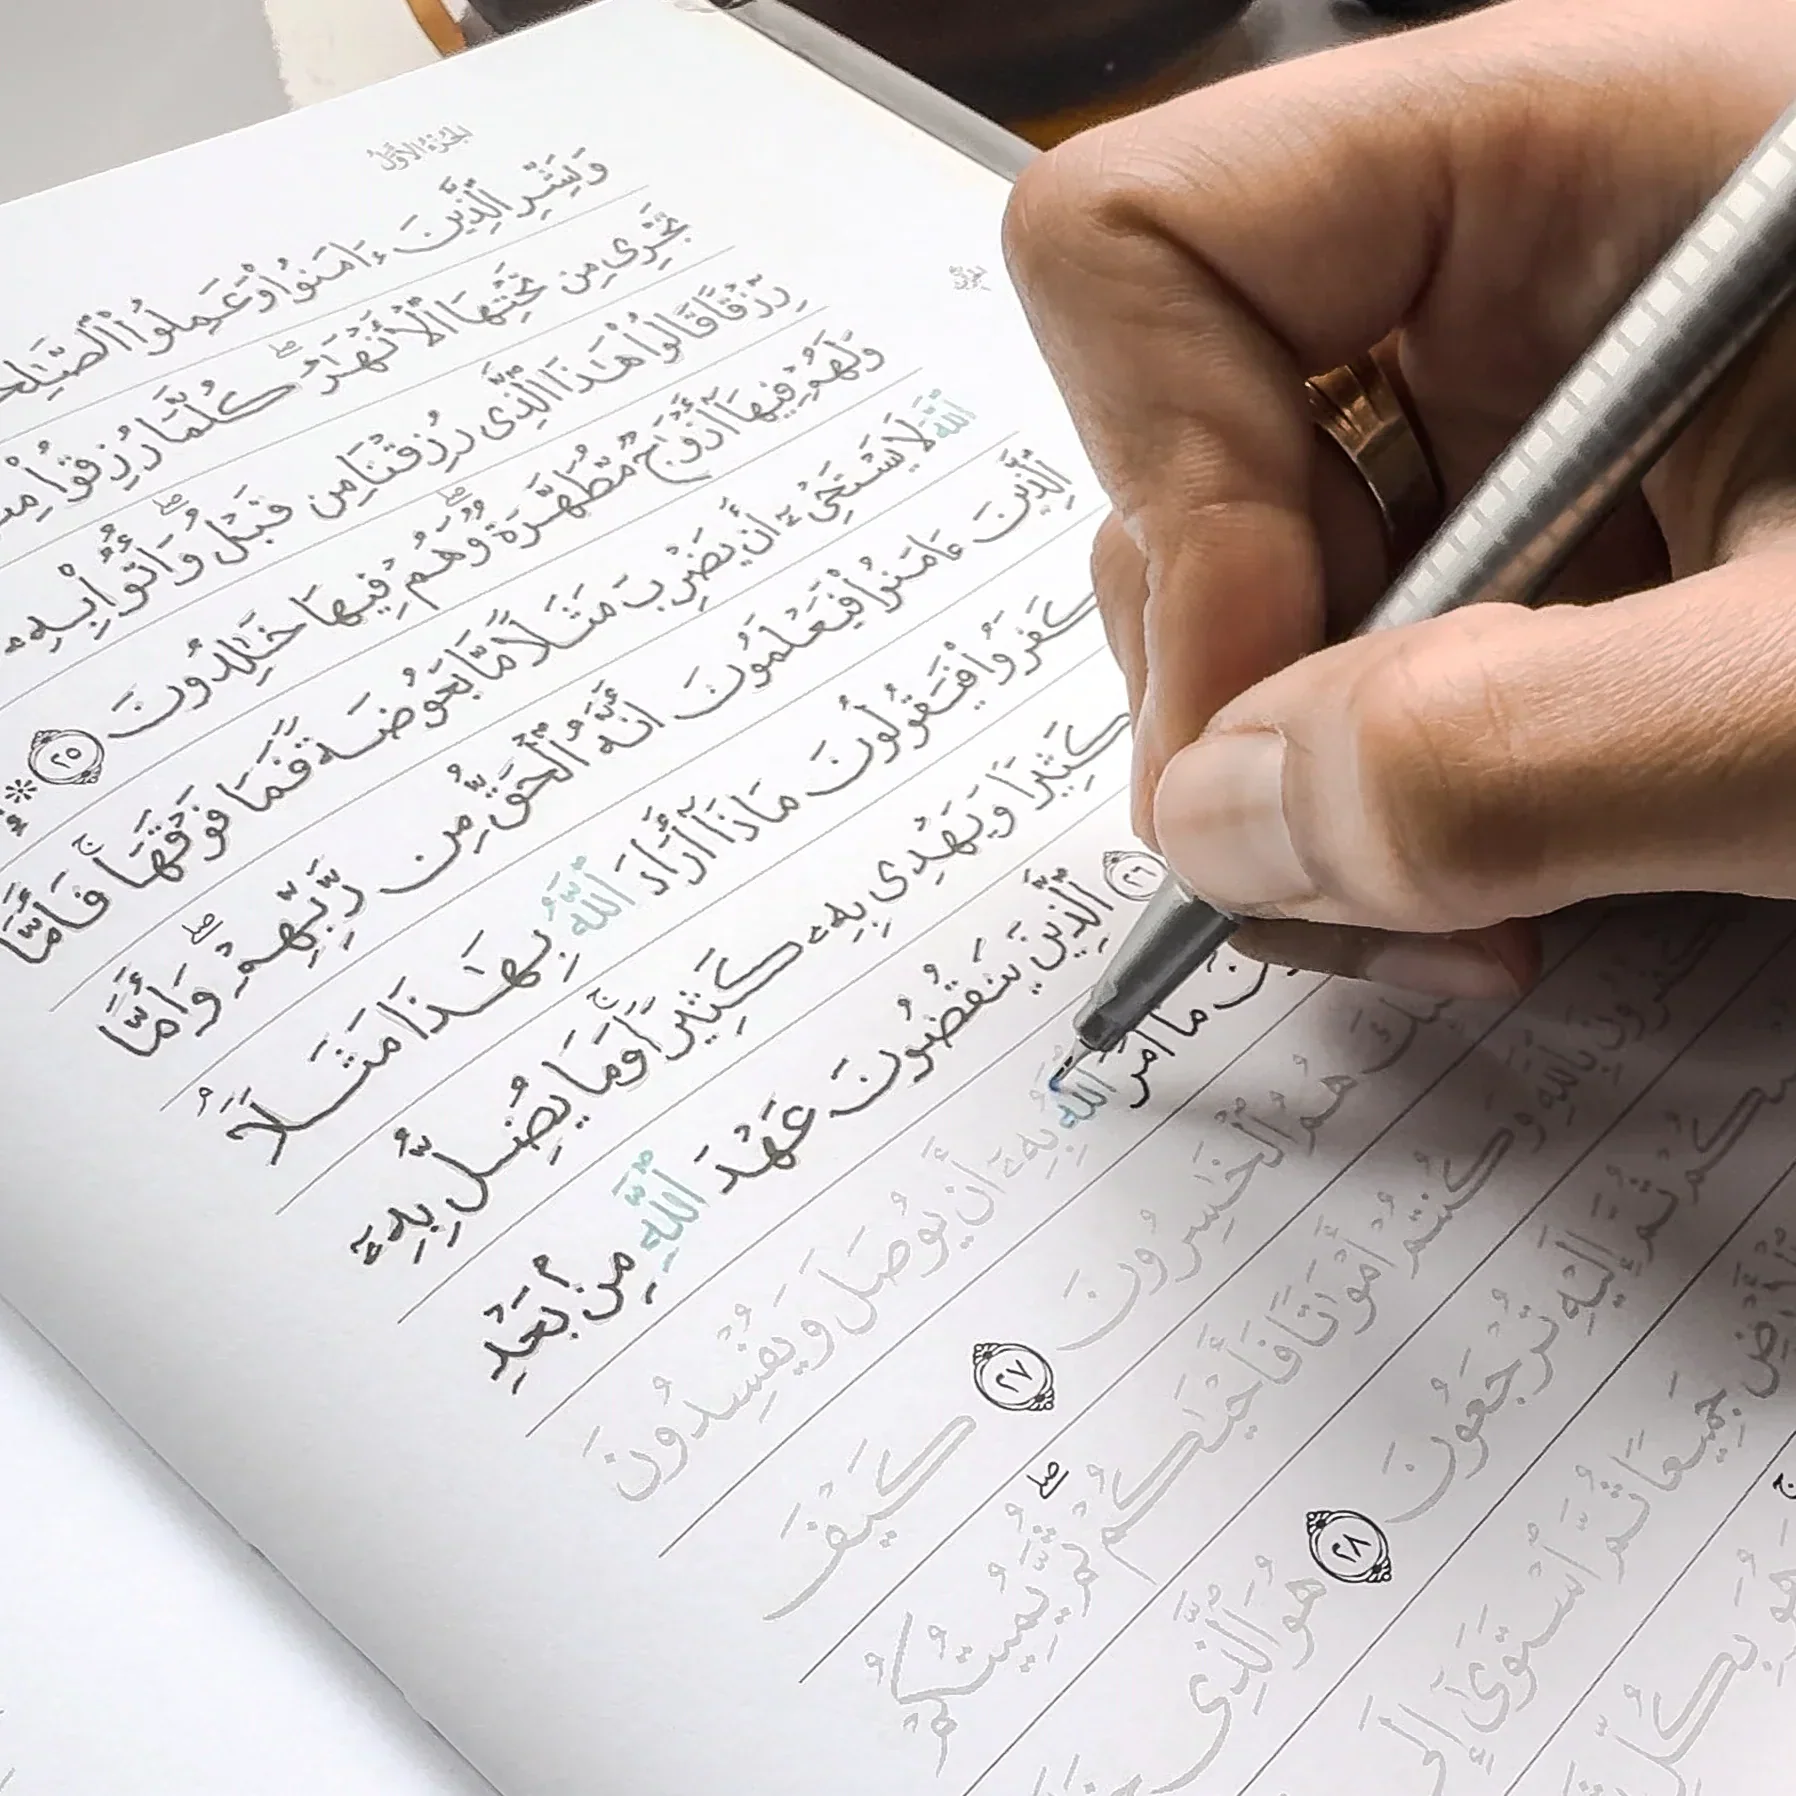 الجُزْءُ الأَوَّلُ
وَبَشِّرِ ٱلَّذِينَ ءَامَنُوا۟ وَعَمِلُوا۟
تَجْرِى مِن تَحْتِهَا ٱلْأَنْهَـٰرُ ۖ كُلَّمَا رُزِقُوا۟
رِّزْقًا قَالُوا۟ هَـٰذَا ٱلَّذِى رُزِقْنَا مِن قَبْلُ ۖ وَأُتُوا۟ بِهِۦ
وَلَهُمْ فِيهَآ أَزْوَٰجٌ مُّطَهَّرَةٌ ۖ وَهُمْ فِيهَا خَـٰلِدُونَ ٢٥ ۞
ٱللَّهَ لَا يَسْتَحْىِۦٓ أَن يَضْرِبَ مَثَلًا مَّا بَعُوضَةً فَمَا فَوْقَهَا ۚ فَأَمَّا
ٱلَّذِينَ ءَامَنُوا۟ فَيَعْلَمُونَ أَنَّهُ ٱلْحَقُّ مِن رَّبِّهِمْ ۖ وَأَمَّا
كَفَرُوا۟ فَيَقُولُونَ مَاذَآ أَرَادَ ٱللَّهُ بِهَـٰذَا مَثَلًا ۘ
كَثِيرًا وَيَهْدِى بِهِۦ كَثِيرًا ۚ وَمَا يُضِلُّ بِهِۦٓ
٢٦ ٱلَّذِينَ يَنقُضُونَ عَهْدَ ٱللَّهِ مِنۢ بَعْدِ
مَآ أَمَرَ ٱللَّهُ بِهِۦٓ أَن يُوصَلَ وَيُفْسِدُونَ
هُمُ ٱلْخَـٰسِرُونَ ٢٧ كَيْفَ
تَكْفُرُونَ بِٱللَّهِ وَكُنتُمْ أَمْوَٰتًا فَأَحْيَـٰكُمْ ۖ ثُمَّ يُمِيتُكُمْ
ثُمَّ إِلَيْهِ تُرْجَعُونَ ٢٨ هُوَ ٱلَّذِى
جَمِيعًا ثُمَّ ٱسْتَوَىٰٓ إِلَى
وَهُوَ بِكُلِّ